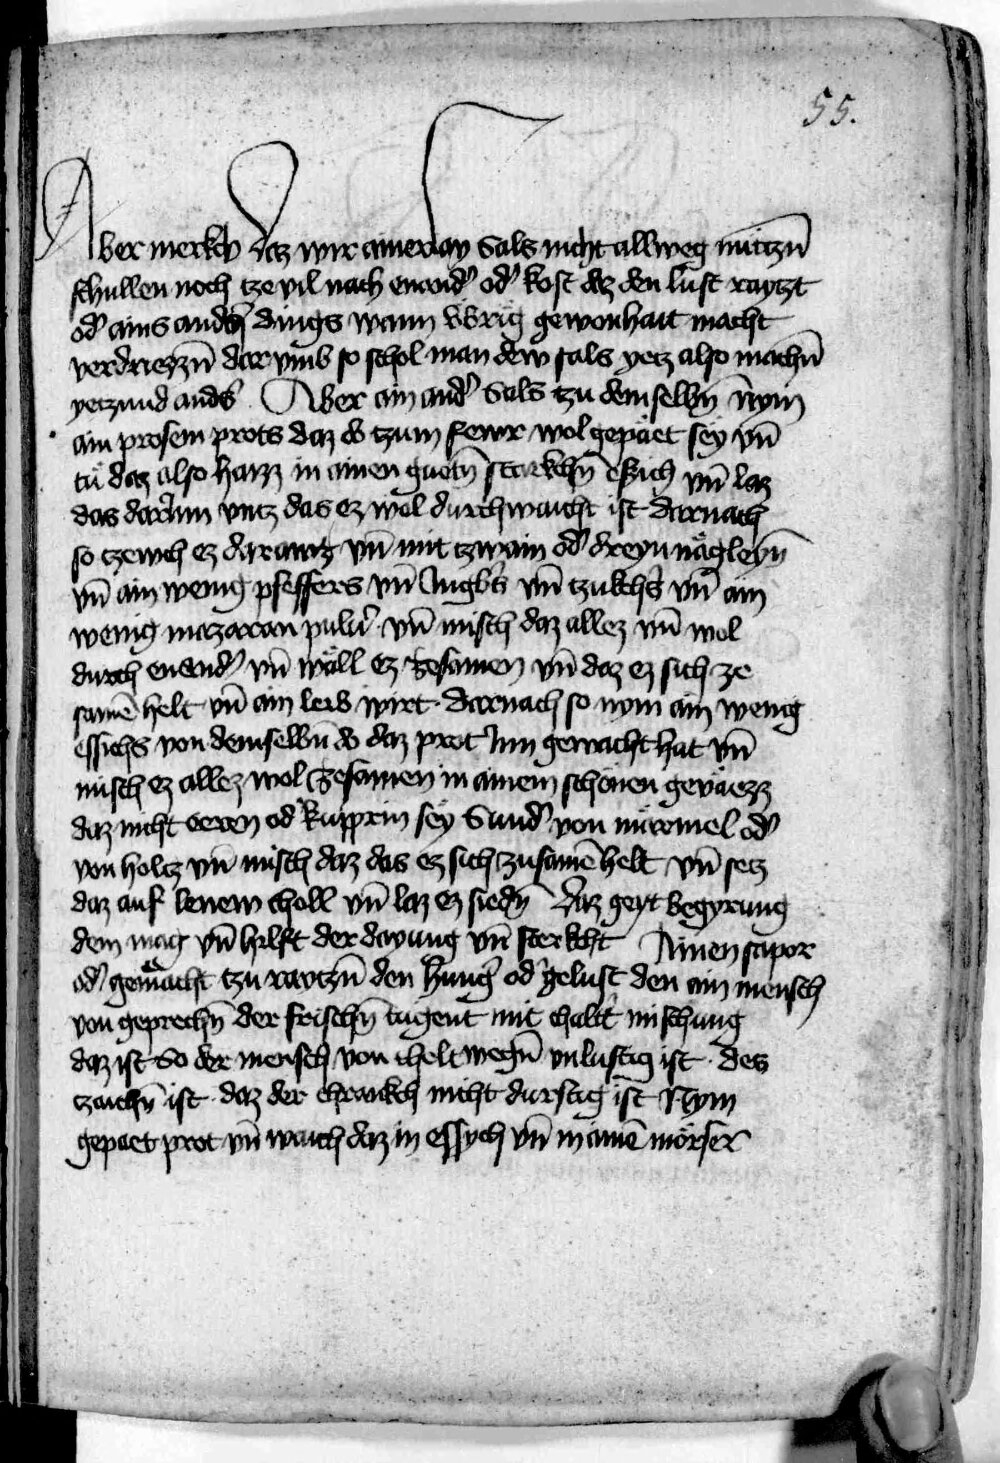 55.
Aber merkch daz wir ainerlay Sals nicht allweg nütczn̄
schullen noch tze vil nach enand' od' kost daz den lust raytzt
od' ains andern dings wann vbrig gewonhait macht
verdriezzn̄ dar vmb so schol man dew sals yetz also machn̄
yetzund and's Aber ain and' Sals tzu demselbn̄ Nym
ain prosem prots daz ob tzum fewr wol gepäet sey vn̄
tů daz also haizz in ainen guetn̄ starkchn̄ essich vn̄ laz
das darinn vntz das ez wol durchwaicht ist darnach
so tzewch ez darawz vn̄ mit tzwain od' dreyn nägleyn̄
vn̄ ain wenig pfeffers vn̄ Ingb's vn̄ tzukch's vn̄ ain
wenig mazaran pulu' vn̄ misch daz allez vn̄ wol
durch enand' vn̄ wäll ez zesamen vn̄ daz ez sich ze
samē helt vn̄ ain leib wirt darnach so nym ain wenig
essichs von demselbn̄ do daz prot Inn gewaicht hat vn̄
misch ez allez wol zesamen in ainem schönen geväezz
daz nicht eeren od' kupprin sey Sund' von märmel od'
von holcz vn̄ misch daz das ez sich zusamē helt vn̄ setz
daz auf kenew choll vn̄ laz ez siedn̄ Daz geyt begyrung
dem mag vn̄ hilft der dayung vn̄ sterkcht Ainen sapor
od' gemächt tzu raytzn̄ den hung' od' gelust den ain mensch
von geprechn̄ der frischn̄ tugent mit chalt' mischung
daz ist So der mensch von chelt wegn̄ vnlustig ist des
tzaichn̄ ist daz der chrankch nicht durstig ist Nym
gepaet prot vn̄ waich daz in essych vn̄ in ainē mörser